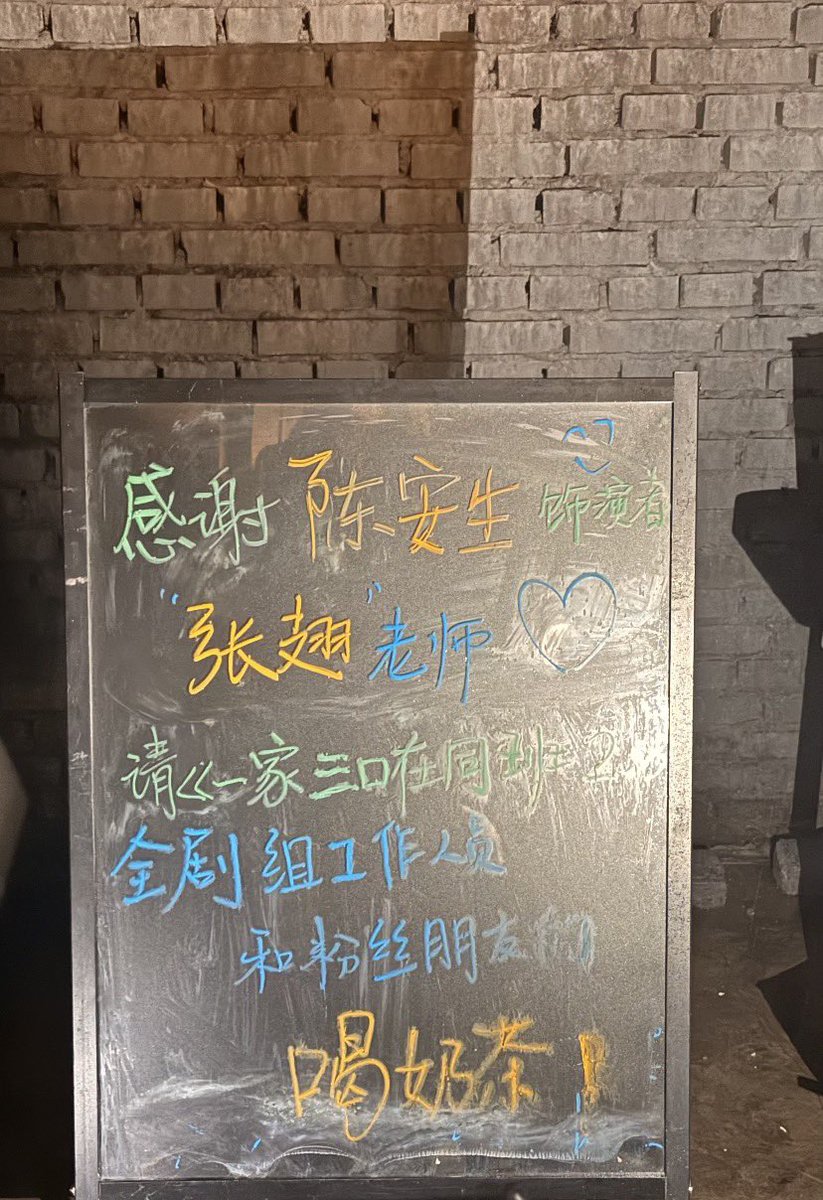 感谢陈安生饰演者
"张翅"老师
请《一家三口在同班2
全剧组工作人员
和粉丝朋友们
喝奶茶！